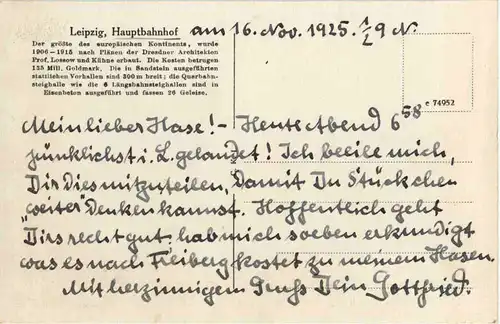 Leipzig, Hauptbahnhof
am 16. Nov. 1925. 1/2 9 N.
Der größte des europäischen Kontinents, wurde
1906–1915 nach Plänen der Dresdner Architekten
Prof. Lossow und Kühne erbaut. Die Kosten betrugen
135 Mill. Goldmark. Die in Sandstein ausgeführten
stattlichen Vorhallen sind 300 m breit; die Querbahn-
steighalle wie die 6 Längsbahnsteighallen sind in
Eisenbeton ausgeführt und fassen 26 Geleise.
c 74952
Mein lieber Hase! – Heute Abend 6 58
pünklichst i. L. gelandet! Ich beeile mich,
Dir Dies mitzuteilen, Damit Du Stückchen
"weiter" Denken kannst. Hoffentlich geht
Dirs recht gut; hab mich soeben erkundigt
was es nach Freiberg kostet zu meinem Hasen.
Mit herzinnigem Gruss Dein Gottfried.